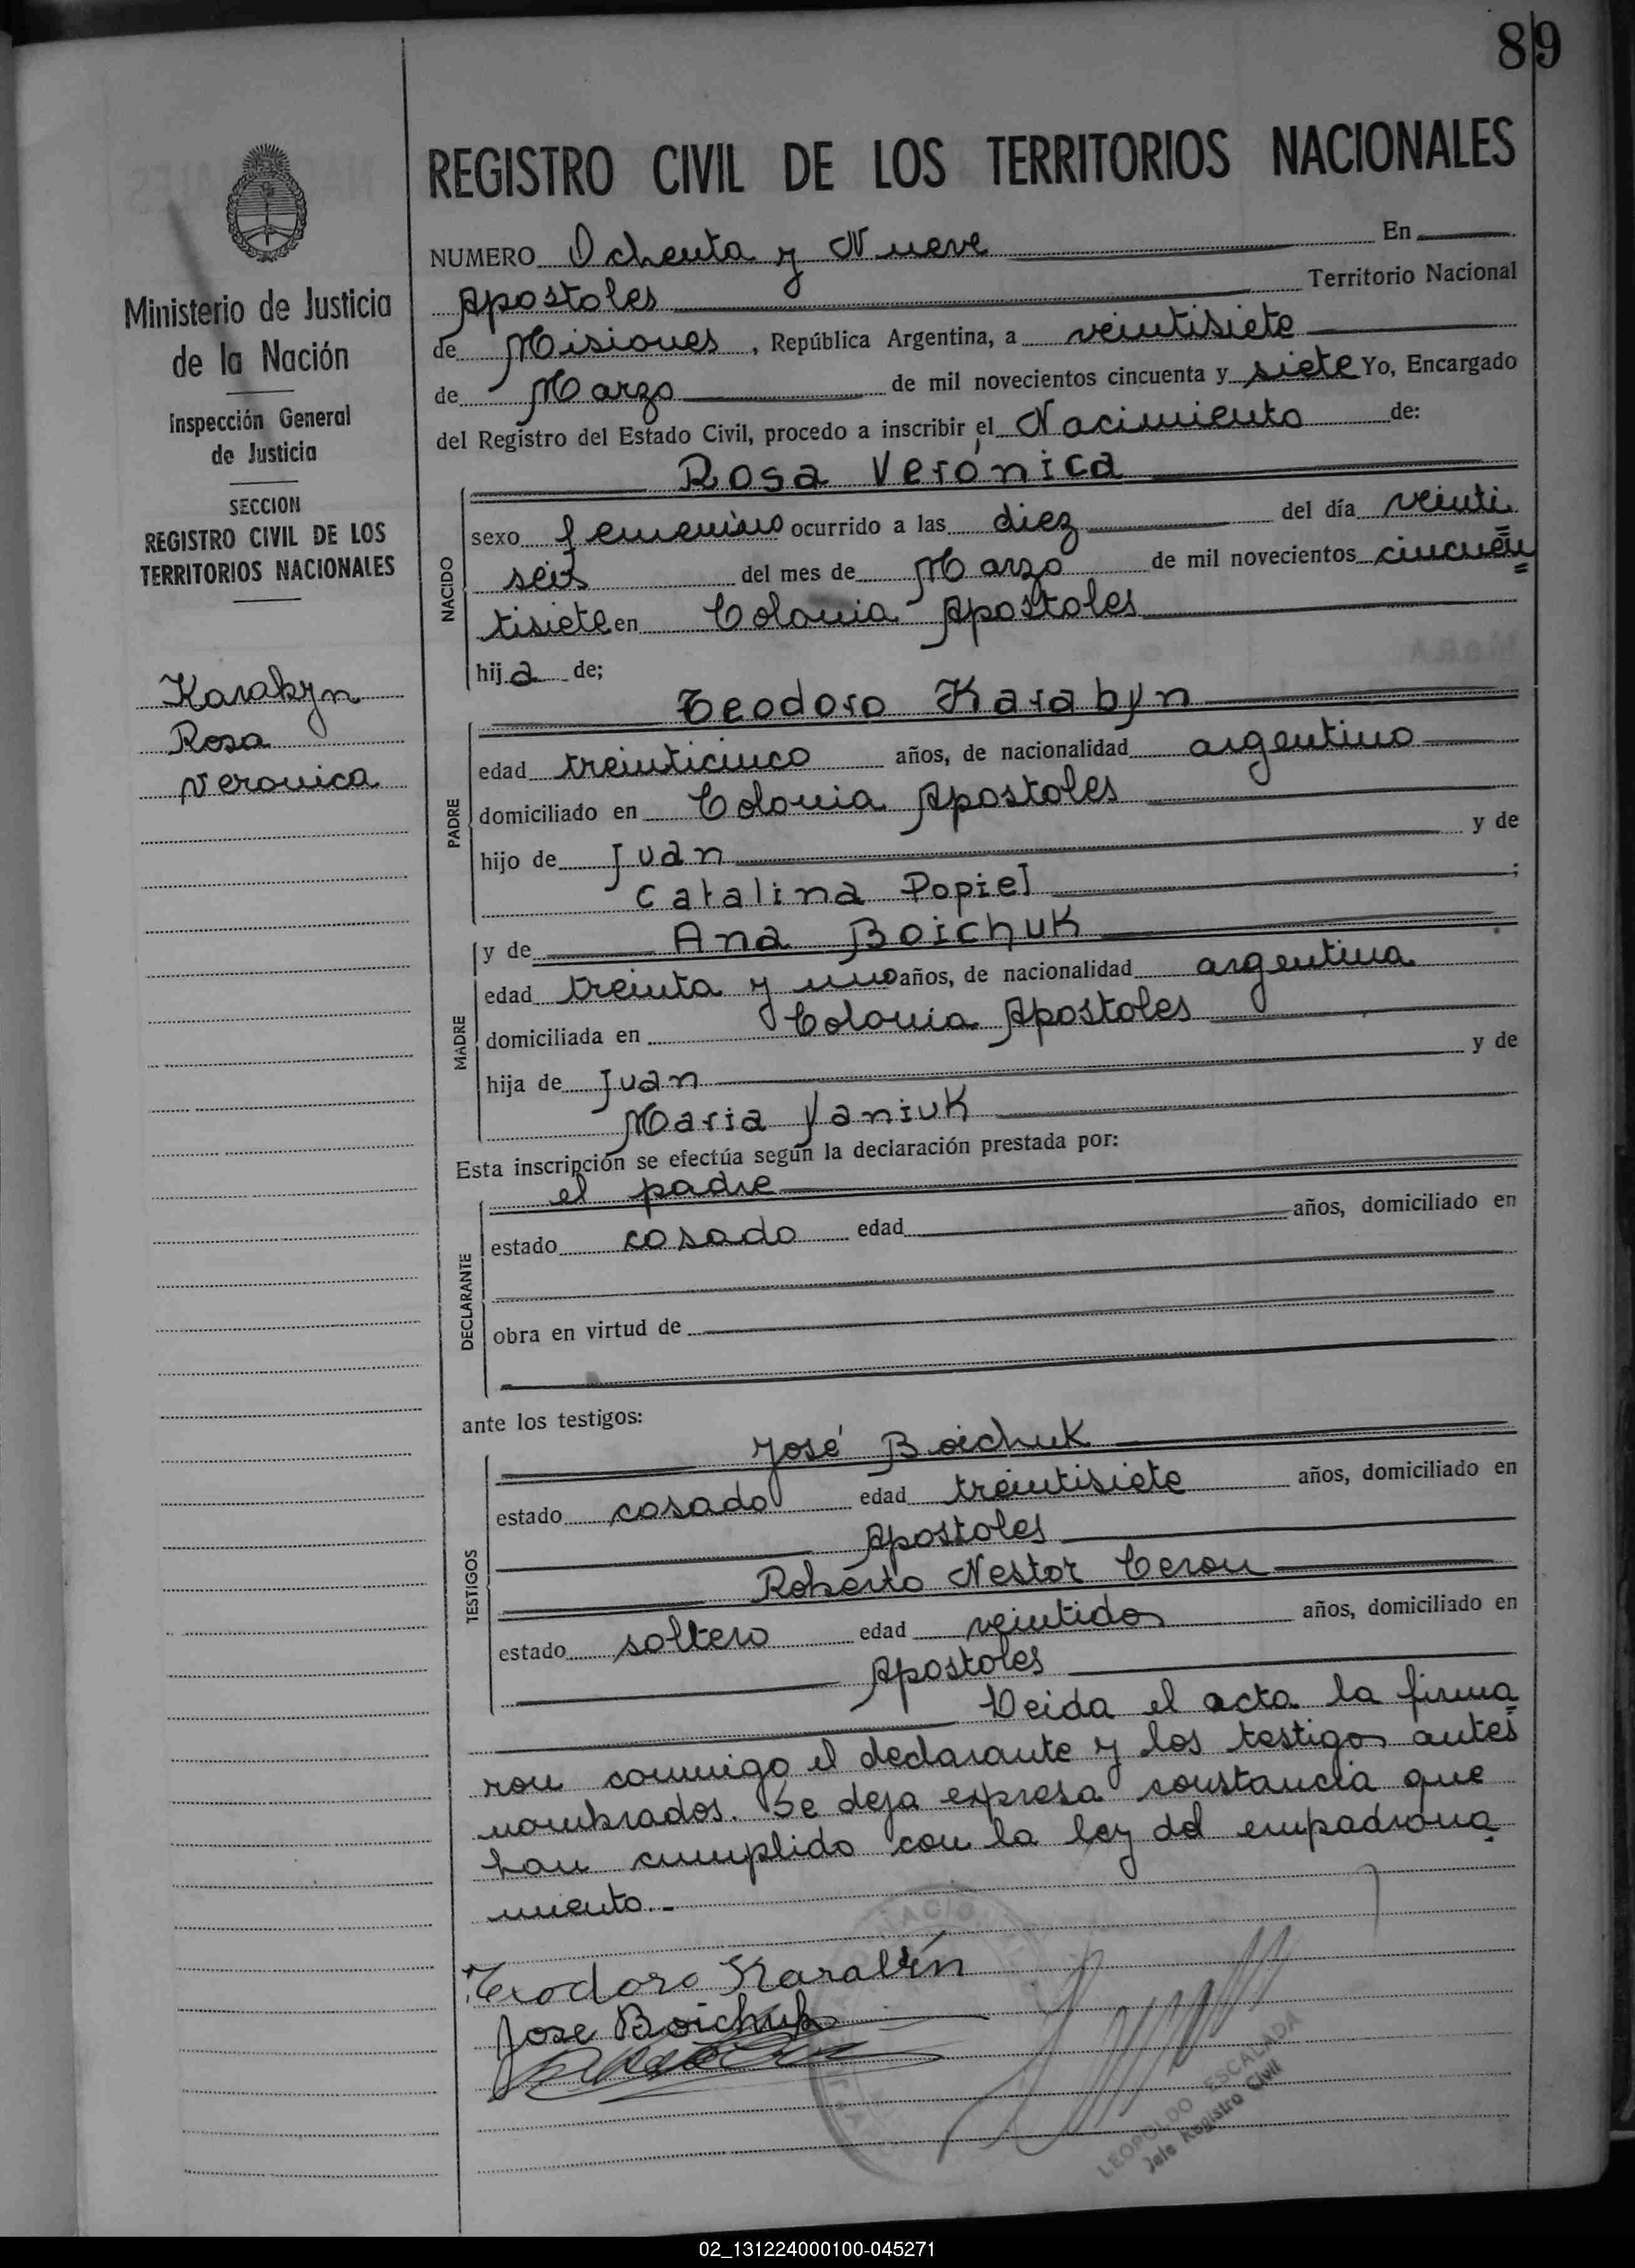 89
REGISTRO CIVIL DE LOS TERRITORIOS NACIONALES
Ministerio de Justicia
de la Nación
Inspección General
de Justicia
SECCION
REGISTRO CIVIL DE LOS
TERRITORIOS NACIONALES
Karabyn
Rosa
Veronica
NUMERO Ochenta y Nueve En
Apostoles Territorio Nacional
de Misiones, República Argentina, a veintisiete
de Marzo de mil novecientos cincuenta y siete Yo, Encargado
del Registro del Estado Civil, procedo a inscribir el Nacimiento de:
NACIDO
Rosa Verónica
sexo femenino ocurrido a las diez del día veinti
seis del mes de Marzo de mil novecientos cincuen
tisiete en Colonia Apostoles
hija de;
PADRE
Teodoro Karabyn
edad treinticinco años, de nacionalidad argentino
domiciliado en Colonia Apostoles
hijo de Juan y de
Catalina Popiel ;
MADRE
y de Ana Boichuk
edad treinta y uno años, de nacionalidad argentina
domiciliada en Colonia Apostoles
hija de Juan y de
Maria Yaniuk
Esta inscripción se efectúa según la declaración prestada por:
DECLARANTE
el padre
estado casado edad años, domiciliado en
obra en virtud de
ante los testigos:
TESTIGOS
José Boichuk
estado casado edad treintisiete años, domiciliado en
Apostoles
Roberto Nestor Ceron
estado soltero edad veintidos años, domiciliado en
Apostoles
Leida el acta la firma
ron conmigo el declarante y los testigos antes
nombrados. Se deja expresa constancia que
han cumplido con la ley del empadrona
miento.-
Teodoro Karabín
Jose Boichuk
LEOPOLDO ESCALADA
Jefe Registro Civil
02_131224000100-045271